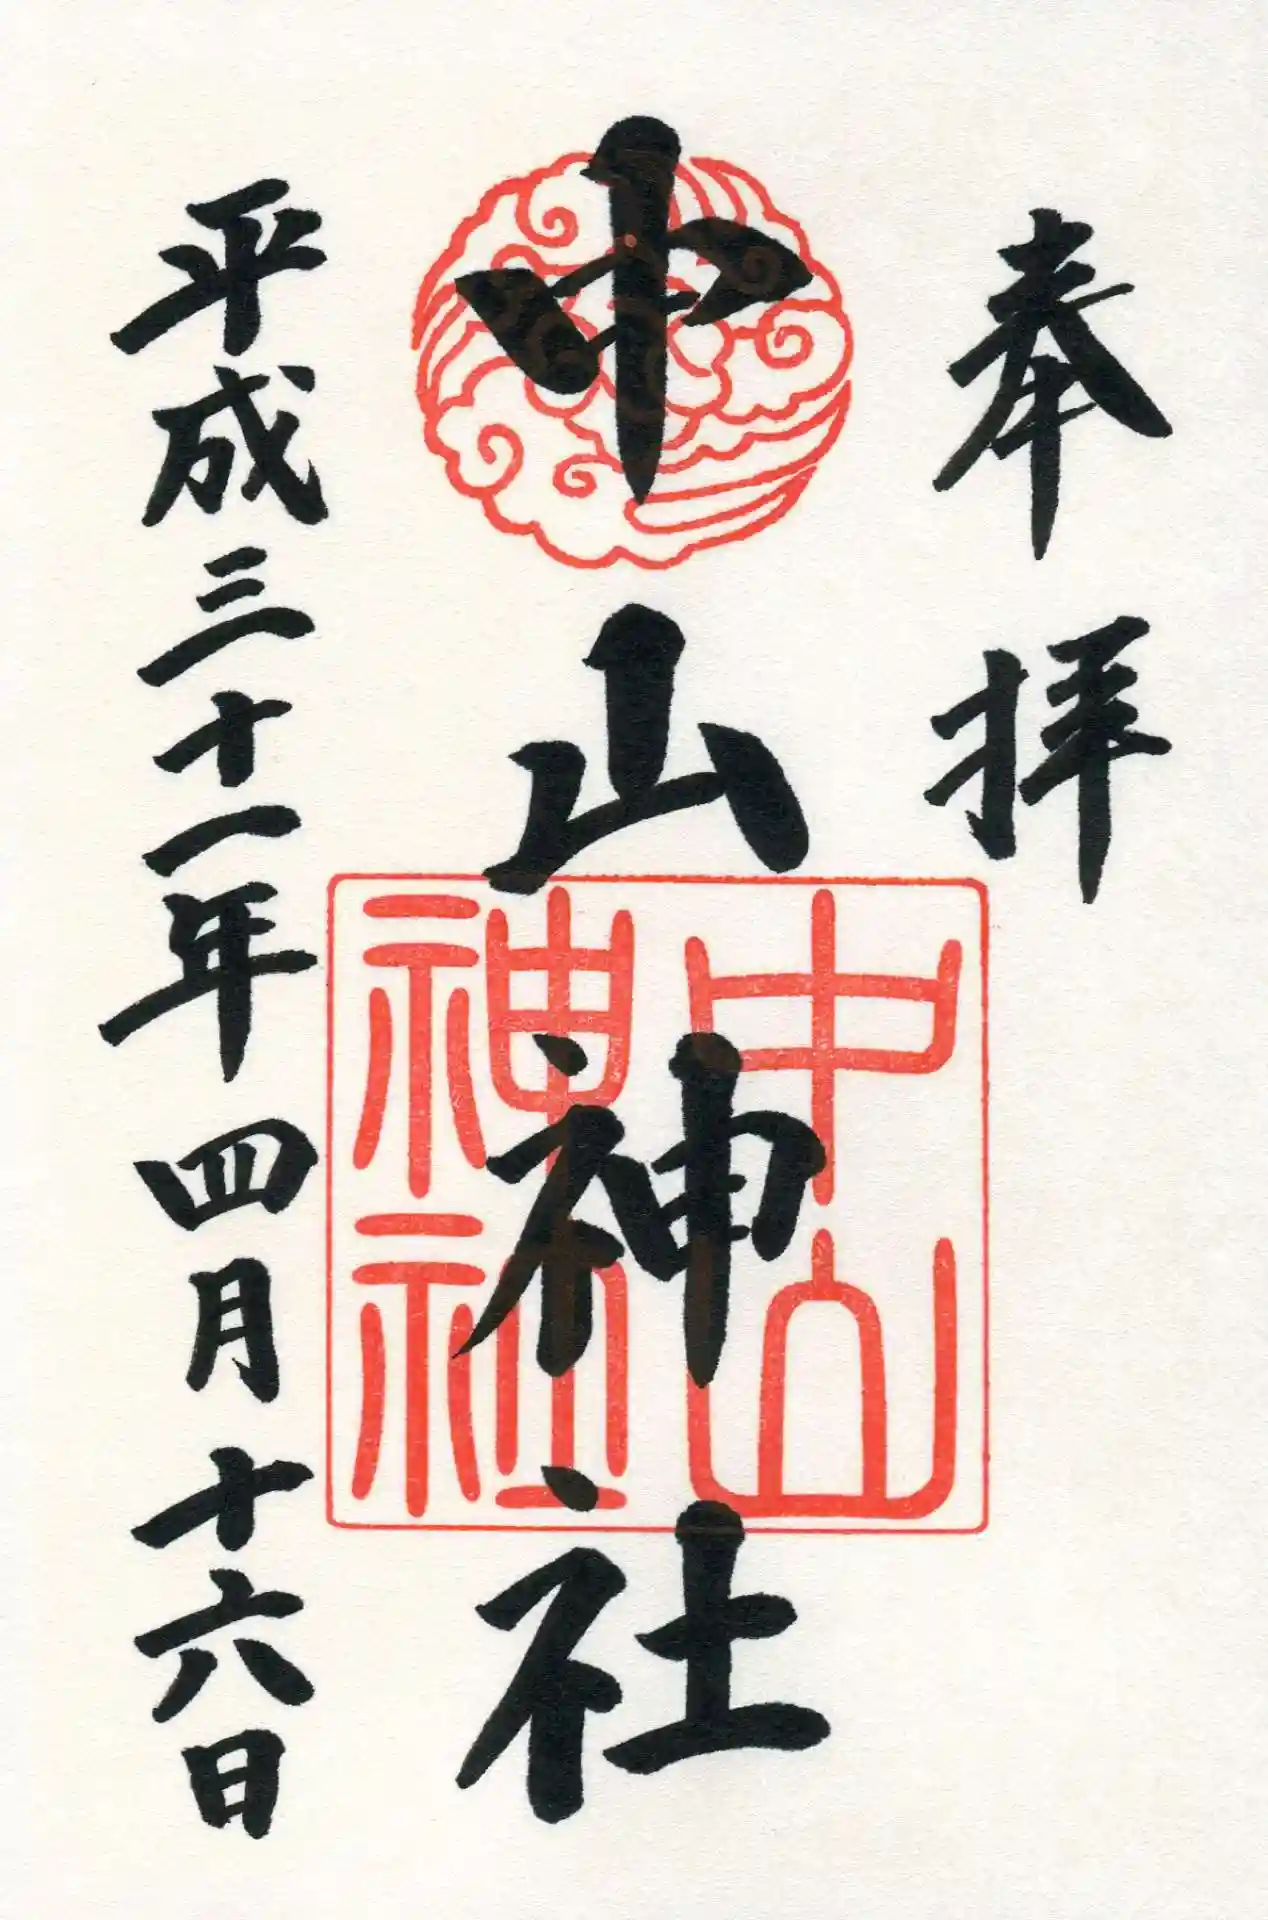 奉拝
中山神社
中山
神社
平成三十一年四月十六日